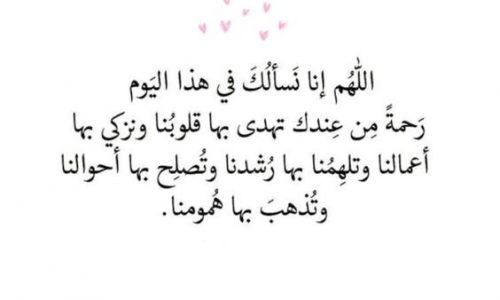 اللهُم إنا نَسألُكَ في هذا اليَوم
رَحمةً مِن عِندك تهدى بها قلوبُنا ونزكي بها
أعمالنا وتلهِمُنا بها رُشدنا وتُصلِح بها أحوالنا
وتُذهبَ بها هُمومنا.